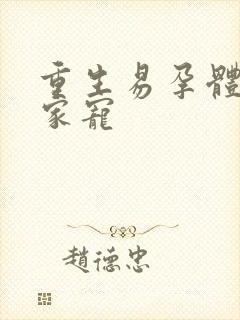 重生易孕體
家寵
趙德忠